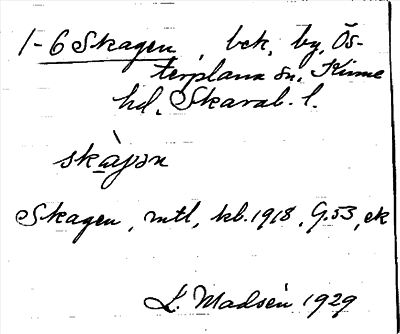 1-6 Skagen, bek, by, Ös-
terplana sn, Kinne
hd, Skarab. l.
skàgən
Skagen, mtl, kb. 1918, G.53, ek
L. Madsén 1929